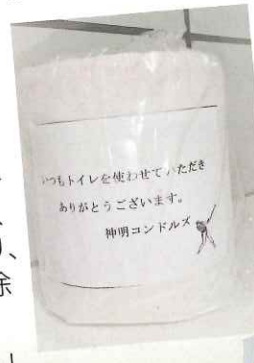 いつもトイレを使わせていただき
ありがとうございます。
神明コンドルズ
除